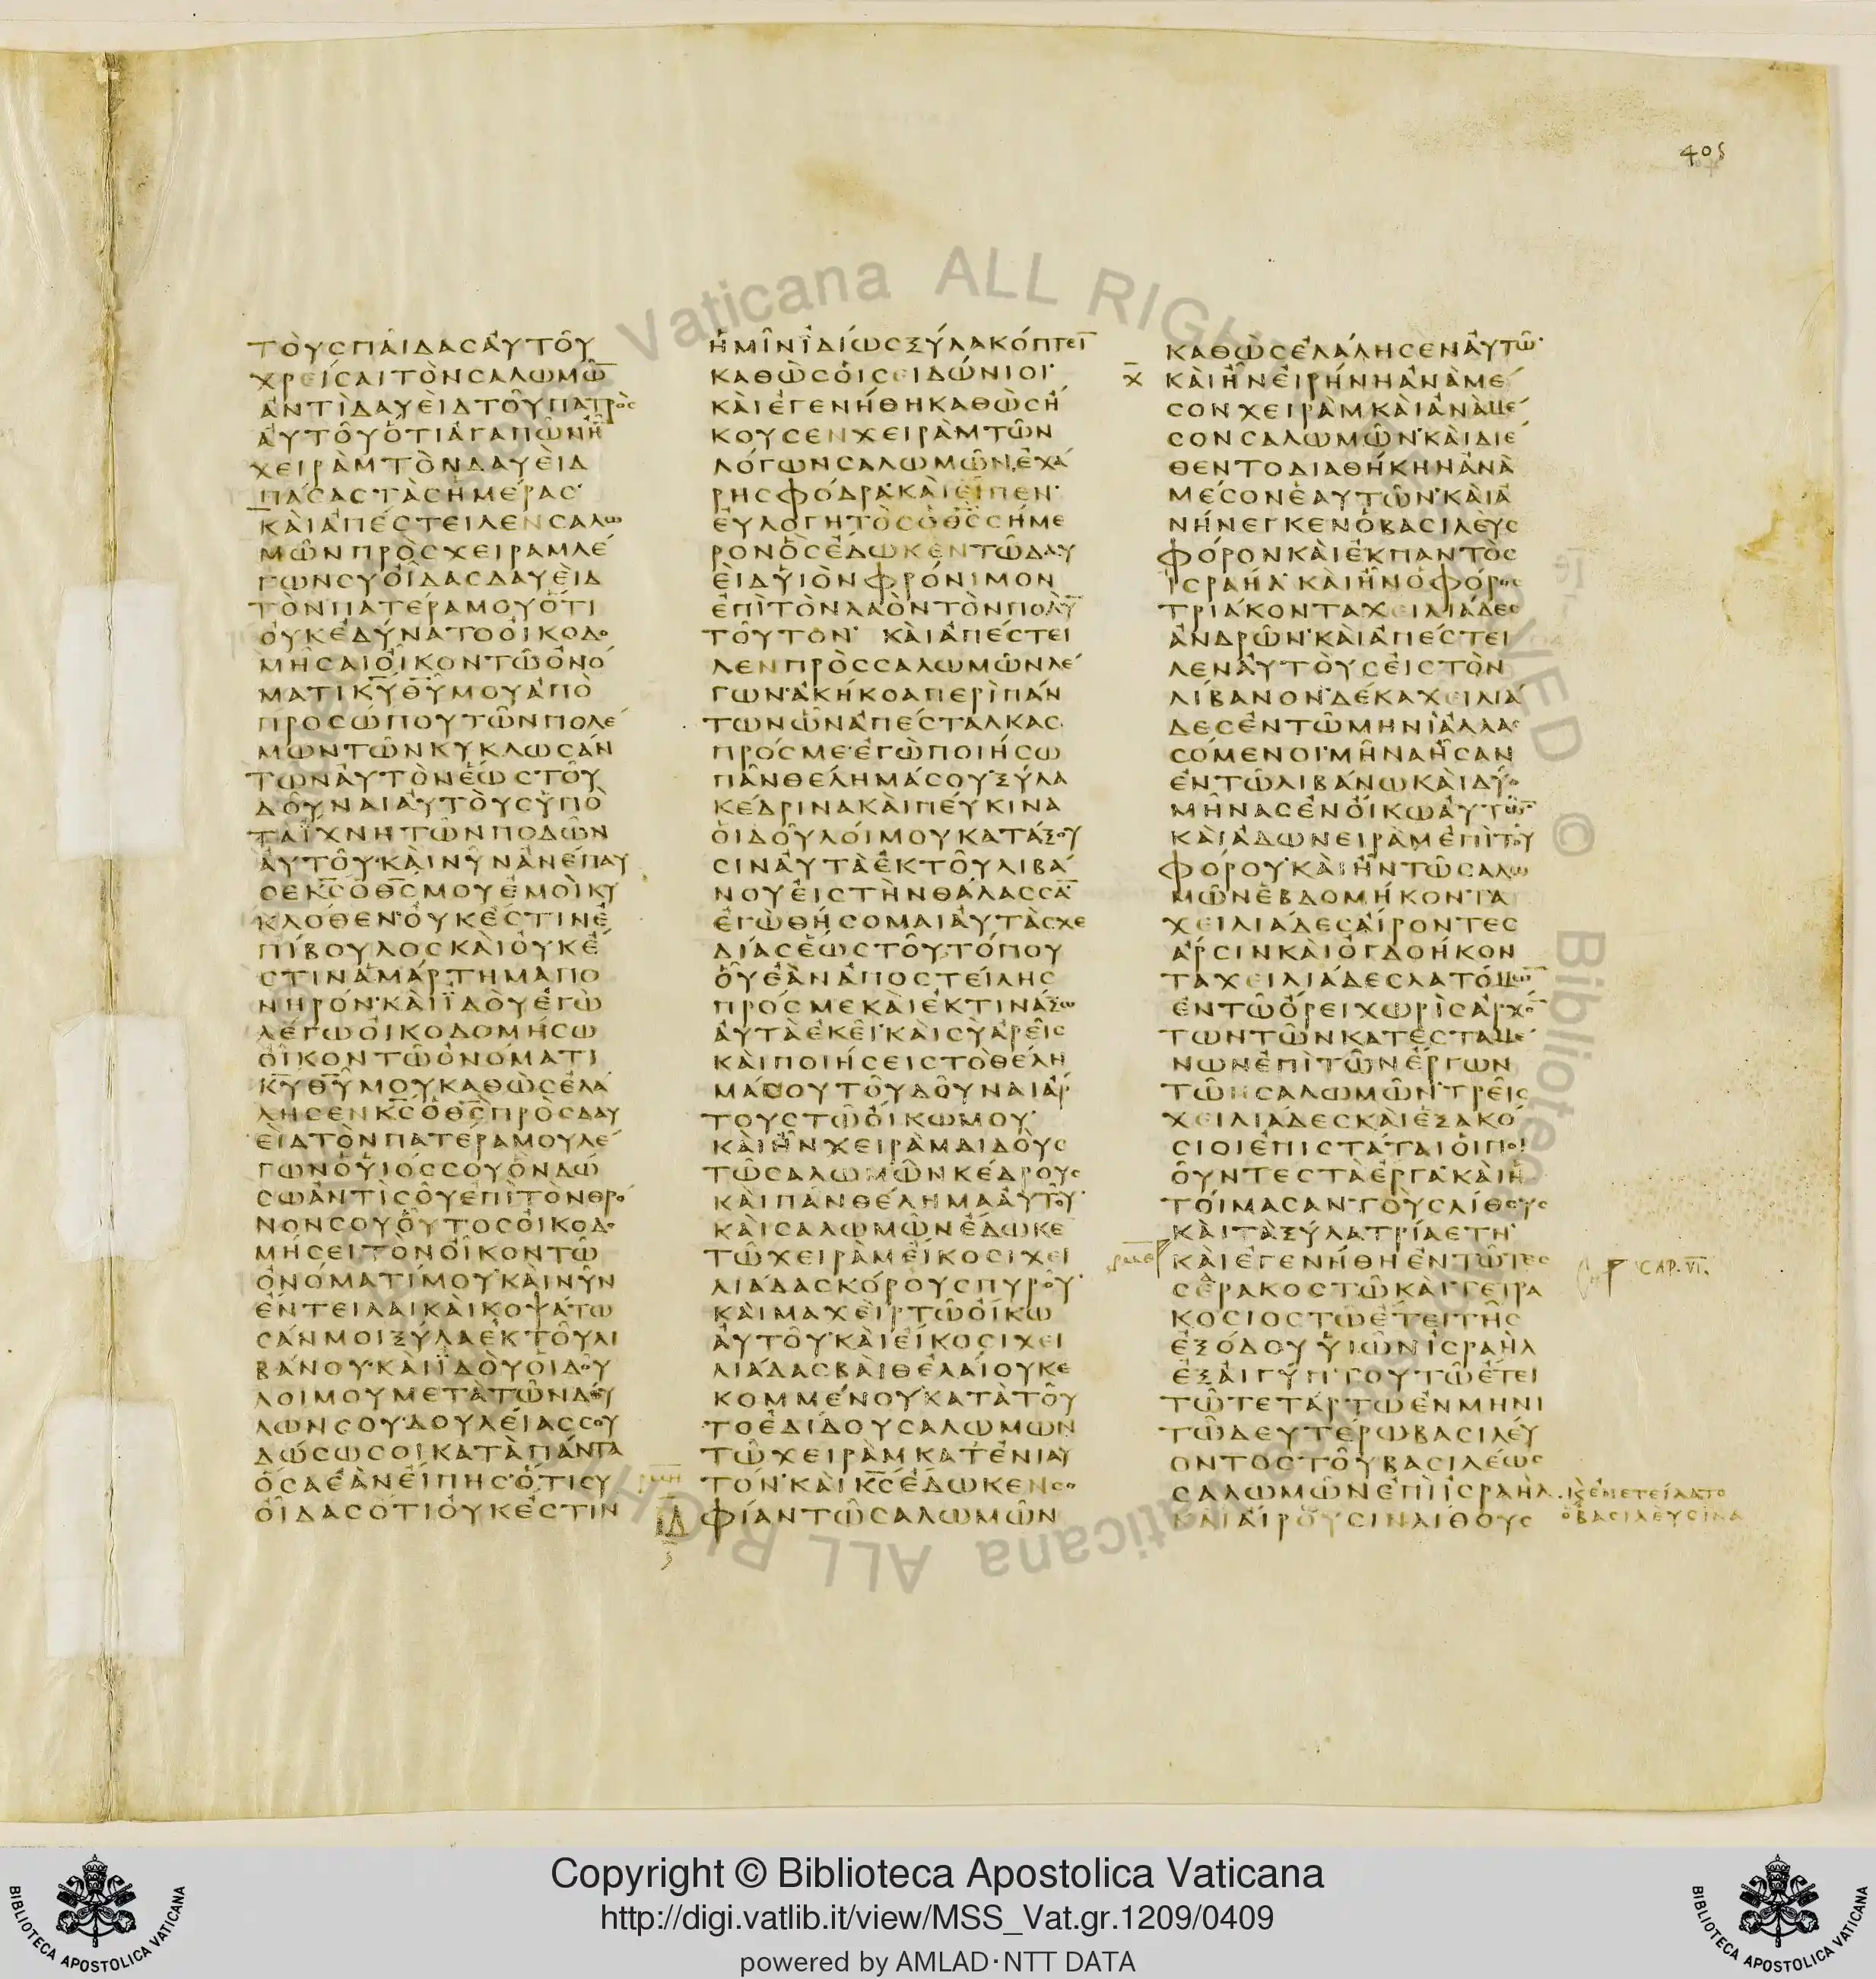 405
ΤΟΥΣΠΑΙΔΑΣΑΥΤΟΥ
ΧΡΕΙΣΑΙΤΟΝΣΑΛΩΜΩ̅
ΑΝΤΙΔΑΥΕΙΔΤΟΥΠΑΤΡΟΣ
ΑΥΤΟΥΟΤΙΑΓΑΠΩΝΗ
ΧΕΙΡΑΜΤΟΝΔΑΥΕΙΔ
ΠΑΣΑΣΤΑΣΗΜΕΡΑΣ
ΚΑΙΑΠΕΣΤΕΙΛΕΝΣΑΛΩ
ΜΩΝΠΡΟΣΧΕΙΡΑΜΛΕ
ΓΩΝΣΥΟΙΔΑΣΔΑΥΕΙΔ
ΤΟΝΠΑΤΕΡΑΜΟΥΟΤΙ
ΟΥΚΕΔΥΝΑΤΟΟΙΚΟΔΟ
ΜΗΣΑΙΟΙΚΟΝΤΩΟΝΟ
ΜΑΤΙΚ̅Υ̅Θ̅Υ̅ΜΟΥΑΠΟ
ΠΡΟΣΩΠΟΥΤΩΝΠΟΛΕ
ΜΩΝΤΩΝΚΥΚΛΩΣΑΝ
ΤΩΝΑΥΤΟΝΕΩΣΤΟΥ
ΔΟΥΝΑΙΑΥΤΟΥΣΥΠΟ
ΤΑΙΧΝΗΤΩΝΠΟΔΩΝ
ΑΥΤΟΥΚΑΙΝΥΝΑΝΕΠΑΥ
ΣΕΚ̅Σ̅ΟΘ̅Σ̅ΜΟΥΕΜΟΙΚΥ
ΚΛΟΘΕΝΟΥΚΕΣΤΙΝΕ
ΠΙΒΟΥΛΟΣΚΑΙΟΥΚΕ
ΣΤΙΝΑΜΑΡΤΗΜΑΠΟ
ΝΗΡΟΝΚΑΙΙΔΟΥΕΓΩ
ΛΕΓΩΟΙΚΟΔΟΜΗΣΩ
ΟΙΚΟΝΤΩΟΝΟΜΑΤΙ
Κ̅Υ̅Θ̅Υ̅ΜΟΥΚΑΘΩΣΕΛΑ
ΛΗΣΕΝΚ̅Σ̅ΟΘ̅Σ̅ΠΡΟΣΔΑΥ
ΕΙΔΤΟΝΠΑΤΕΡΑΜΟΥΛΕ
ΓΩΝΟΥΙΟΣΣΟΥΟΝΔΩ
ΣΩΑΝΤΙΣΟΥΕΠΙΤΟΝΘΡΟ
ΝΟΝΣΟΥΟΥΤΟΣΟΙΚΟΔΟ
ΜΗΣΕΙΤΟΝΟΙΚΟΝΤΩ
ΟΝΟΜΑΤΙΜΟΥΚΑΙΝΥΝ
ΕΝΤΕΙΛΑΙΚΑΙΚΟΨΑΤΩ
ΣΑΝΜΟΙΞΥΛΑΕΚΤΟΥΛΙ
ΒΑΝΟΥΚΑΙΙΔΟΥΟΙΔΟΥ
ΛΟΙΜΟΥΜΕΤΑΤΩΝΔΟΥ
ΛΩΝΣΟΥΔΟΥΛΕΙΑΣΣΟΥ
ΔΩΣΩΣΟΙΚΑΤΑΠΑΝΤΑ
ΟΣΑΕΑΝΕΙΠΗΣΟΤΙΣΥ
ΟΙΔΑΣΟΤΙΟΥΚΕΣΤΙΝ
ΗΜΙΝΙΔΙΩΣΞΥΛΑΚΟΠΤΕΙ̅
ΚΑΘΩΣΟΙΣΕΙΔΩΝΙΟΙ
ΚΑΙΕΓΕΝΗΘΗΚΑΘΩΣΗ
ΚΟΥΣΕΝΧΕΙΡΑΜΤΩΝ
ΛΟΓΩΝΣΑΛΩΜΩΝΕΧΑ
ΡΗΣΦΟΔΡΑΚΑΙΕΙΠΕΝ
ΕΥΛΟΓΗΤΟΣΟΘ̅Σ̅ΣΗΜΕ
ΡΟΝΟΣΕΔΩΚΕΝΤΩΔΑΥ
ΕΙΔΥΙΟΝΦΡΟΝΙΜΟΝ
ΕΠΙΤΟΝΛΑΟΝΤΟΝΠΟΛΥ̅
ΤΟΥΤΟΝ ΚΑΙΑΠΕΣΤΕΙ
ΛΕΝΠΡΟΣΣΑΛΩΜΩΝΛΕ
ΓΩΝΑΚΗΚΟΑΠΕΡΙΠΑΝ
ΤΩΝΩΝΑΠΕΣΤΑΛΚΑΣ
ΠΡΟΣΜΕΕΓΩΠΟΙΗΣΩ
ΠΑΝΘΕΛΗΜΑΣΟΥΞΥΛΑ
ΚΕΔΡΙΝΑΚΑΙΠΕΥΚΙΝΑ
ΟΙΔΟΥΛΟΙΜΟΥΚΑΤΑΞΟΥ
ΣΙΝΑΥΤΑΕΚΤΟΥΛΙΒΑ
ΝΟΥΕΙΣΤΗΝΘΑΛΑΣΣΑ̅
ΕΓΩΘΗΣΟΜΑΙΑΥΤΑΣΧΕ
ΔΙΑΣΕΩΣΤΟΥΤΟΠΟΥ
ΟΥΕΑΝΑΠΟΣΤΕΙΛΗΣ
ΠΡΟΣΜΕΚΑΙΕΚΤΙΝΑΞΩ
ΑΥΤΑΕΚΕΙΚΑΙΣΥΑΡΕΙΣ
ΚΑΙΠΟΙΗΣΕΙΣΤΟΘΕΛΗ
ΜΑΣΟΥΤΟΥΔΟΥΝΑΙΑΡ
ΤΟΥΣΤΩΟΙΚΩΜΟΥ
ΚΑΙΗΝΧΕΙΡΑΜΔΙΔΟΥΣ
ΤΩΣΑΛΩΜΩΝΚΕΔΡΟΥΣ
ΚΑΙΠΑΝΘΕΛΗΜΑΑΥΤΟΥ
ΚΑΙΣΑΛΩΜΩΝΕΔΩΚΕ
ΤΩΧΕΙΡΑΜΕΙΚΟΣΙΧΕΙ
ΛΙΑΔΑΣΚΟΡΟΥΣΠΥΡΟΥ
ΚΑΙΜΑΧΕΙΡΤΩΟΙΚΩ
ΑΥΤΟΥΚΑΙΕΙΚΟΣΙΧΕΙ
ΛΙΑΔΑΣΒΑΙΘΕΛΑΙΟΥΚΕ
ΚΟΜΜΕΝΟΥΚΑΤΑΤΟΥ
ΤΟΕΔΙΔΟΥΣΑΛΩΜΩΝ
ΤΩΧΕΙΡΑΜΚΑΤΕΝΙΑΥ
ΤΟΝΚΑΙΚ̅Σ̅ΕΔΩΚΕΝΣΟ
ΦΙΑΝΤΩΣΑΛΩΜΩΝ
ΚΑΘΩΣΕΛΑΛΗΣΕΝΑΥΤΩ
χ̅ ΚΑΙΗΝΕΙΡΗΝΗΑΝΑΜΕ
ΣΟΝΧΕΙΡΑΜΚΑΙΑΝΑΜΕ
ΣΟΝΣΑΛΩΜΩΝΚΑΙΔΙΕ
ΘΕΝΤΟΔΙΑΘΗΚΗΝΑΝΑ
ΜΕΣΟΝΕΑΥΤΩΝΚΑΙΑ
ΝΗΝΕΓΚΕΝΟΒΑΣΙΛΕΥΣ
ΦΟΡΟΝΚΑΙΕΚΠΑΝΤΟΣ
ΙΣΡΑΗΛΚΑΙΗΝΟΦΟΡΟΣ
ΤΡΙΑΚΟΝΤΑΧΕΙΛΙΑΔΕΣ
ΑΝΔΡΩΝΚΑΙΑΠΕΣΤΕΙ
ΛΕΝΑΥΤΟΥΣΕΙΣΤΟΝ
ΛΙΒΑΝΟΝΔΕΚΑΧΕΙΛΙΑ
ΔΕΣΕΝΤΩΜΗΝΙΑΛΛΑΣ
ΣΟΜΕΝΟΙΜΗΝΑΗΣΑΝ
ΕΝΤΩΛΙΒΑΝΩΚΑΙΔΥΟ
ΜΗΝΑΣΕΝΟΙΚΩΑΥΤΩ̅
ΚΑΙΑΔΩΝΕΙΡΑΜΕΠΙΤΟΥ
ΦΟΡΟΥΚΑΙΗΝΤΩΣΑΛΩ
ΜΩΝΕΒΔΟΜΗΚΟΝΤΑ
ΧΕΙΛΙΑΔΕΣΑΙΡΟΝΤΕΣ
ΑΡΣΙΝΚΑΙΟΓΔΟΗΚΟΝ
ΤΑΧΕΙΛΙΑΔΕΣΛΑΤΟΜΩ̅
ΕΝΤΩΟΡΕΙΧΩΡΙΣΑΡΧΟ̅
ΤΩΝΤΩΝΚΑΤΕΣΤΑΜΕ
ΝΩΝΕΠΙΤΩΝΕΡΓΩΝ
ΤΩΝΣΑΛΩΜΩΝΤΡΕΙΣ
ΧΕΙΛΙΑΔΕΣΚΑΙΕΞΑΚΟ
ΣΙΟΙΕΠΙΣΤΑΤΑΙΟΙΠΟΙ
ΟΥΝΤΕΣΤΑΕΡΓΑΚΑΙΗ
ΤΟΙΜΑΣΑΝΤΟΥΣΛΙΘΟΥΣ
ΚΑΙΤΑΞΥΛΑΤΡΙΑΕΤΗ
ΚΑΙΕΓΕΝΗΘΗΕΝΤΩΤΕΣ
ΣΕΡΑΚΟΣΤΩΚΑΙΤΕΤΡΑ
ΚΟΣΙΟΣΤΩΕΤΕΙΤΗΣ
ΕΞΟΔΟΥΥΙΩΝΙΣΡΑΗΛ
ΕΞΑΙΓΥΠΤΟΥΤΩΕΤΕΙ
ΤΩΤΕΤΑΡΤΩΕΝΜΗΝΙ
ΤΩΔΕΥΤΕΡΩΒΑΣΙΛΕΥ
ΟΝΤΟΣΤΟΥΒΑΣΙΛΕΩΣ
ΣΑΛΩΜΩΝΕΠΙΙΣΡΑΗΛ
ΚΑΙΑΙΡΟΥΣΙΝΛΙΘΟΥΣ
CAP. VI.
Copyright © Biblioteca Apostolica Vaticana
http://digi.vatlib.it/view/MSS_Vat.gr.1209/0409
powered by AMLAD·NTT DATA
BIBLIOTECA APOSTOLICA VATICANA
BIBLIOTECA APOSTOLICA VATICANA